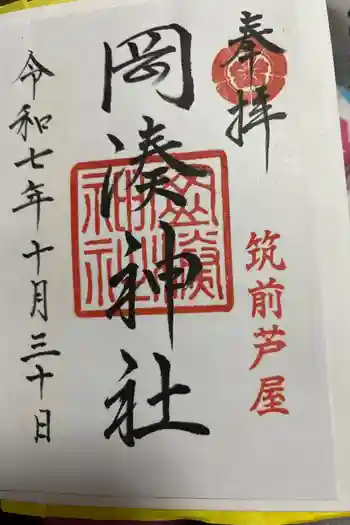 奉拝
筑前芦屋
岡湊神社
令和七年十月三十日